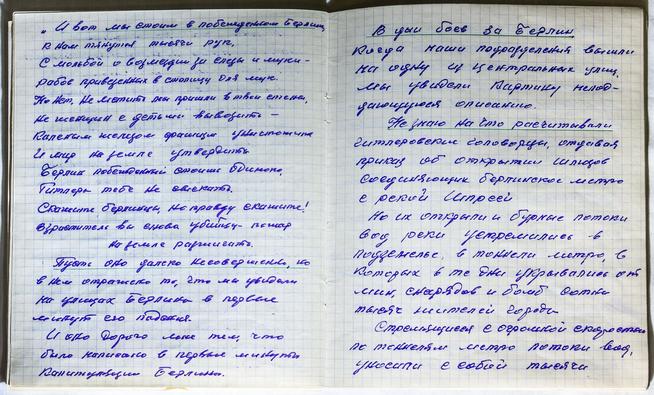 „И вот мы стоим в побежденном Берлине,
К нам тянутся тысячи рук,
С мольбой о возмездии за слёзы и муки-
рабов приведенных в столицу для мук.
Но нет, не мстить мы пришли в твои стены,
не женщин с детьми выводить -
Каленым железом фашизм уничтожить
И мир на земле утвердить
Берлин побежденный стоишь одиноко,
Гитлера тебе не сыскать.
Скажите Берлинцы, но правду скажите!
вы снова убийцу- пожар
на земле разжигать.
Пусть оно далеко несовершенно, но
в нем отражено то, что мы увидали
на улицах Берлина в первые
минуты его падения.
И оно дорого мне тем, что
было написано в первые минуты
капитуляции Берлина.
В дни боев за Берлин
Когда наши подразделения вышли
на одну из центральных улиц,
мы увидели картину неподдающуюся
описанию.
Не знаю на что расчитывали
гитлеровские головорезы, отдавая
приказ об открытии шлюзов
соединяющих берлинское метро
с рекой Шпрее
Но их открыли и бурные потоки
вод реки устремились в
подземелье, в тоннели метро, в
которых в те дни укрывались от
мин, снарядов и бомб сотни
тысяч жителей города
Стремящиеся с огромной скоростью
по тоннелям метро потоки вод,
уносили с собой тысячи